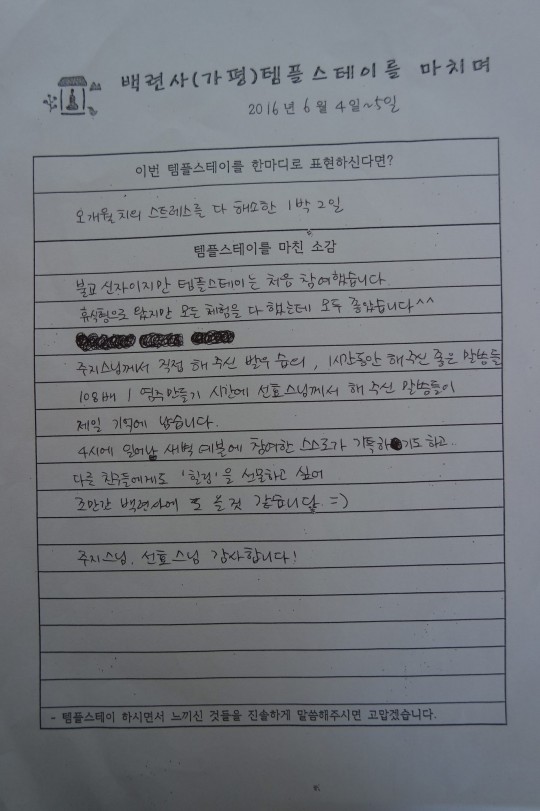 백련사(가평)템플스테이를 마치며
2016년 6월 4일~5일
이번 템플스테이를 한마디로 표현하신다면?
오개월치의 스트레스를 다 해소한 1박 2일
템플스테이를 마친 소감
불교 신자이지만 템플스테이는 처음 참여했습니다.
휴식형으로 왔지만 모든 체험을 다 했는데 모두 좋았습니다^^
주지스님께서 직접 해 주신 발우 습의, 1시간동안 해주신 좋은 말씀들
108배 / 염주만들기 시간에 선효스님께서 해 주신 말씀들이
제일 기억에 남습니다.
4시에 일어나 새벽 예불에 참여한 스스로가 기특하기도 하고..
다른 친구들에게도 '힐링'을 선물하고 싶어
조만간 백련사에 또 올 것 같습니다. =)
주지스님, 선효스님 감사합니다!
- 템플스테이 하시면서 느끼신 것들을 진솔하게 말씀해주시면 고맙겠습니다.